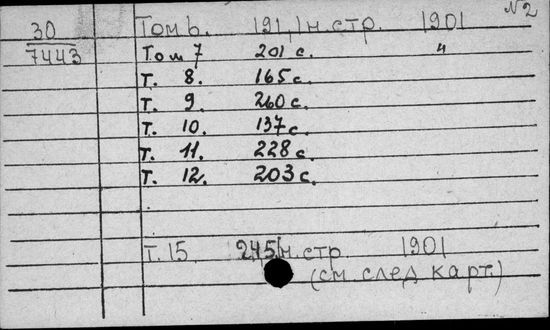 №2
30 Том 6. 191,1 н.стр. 1901
7443 Том 7 201 с. "
Т. 8. 165 с.
Т. 9. 260 с.
Т. 10. 137 с.
Т. 11. 228 с.
Т. 12. 203 с.
Т. 15. 245,1 н.стр. 1901
(см. след. карт.)